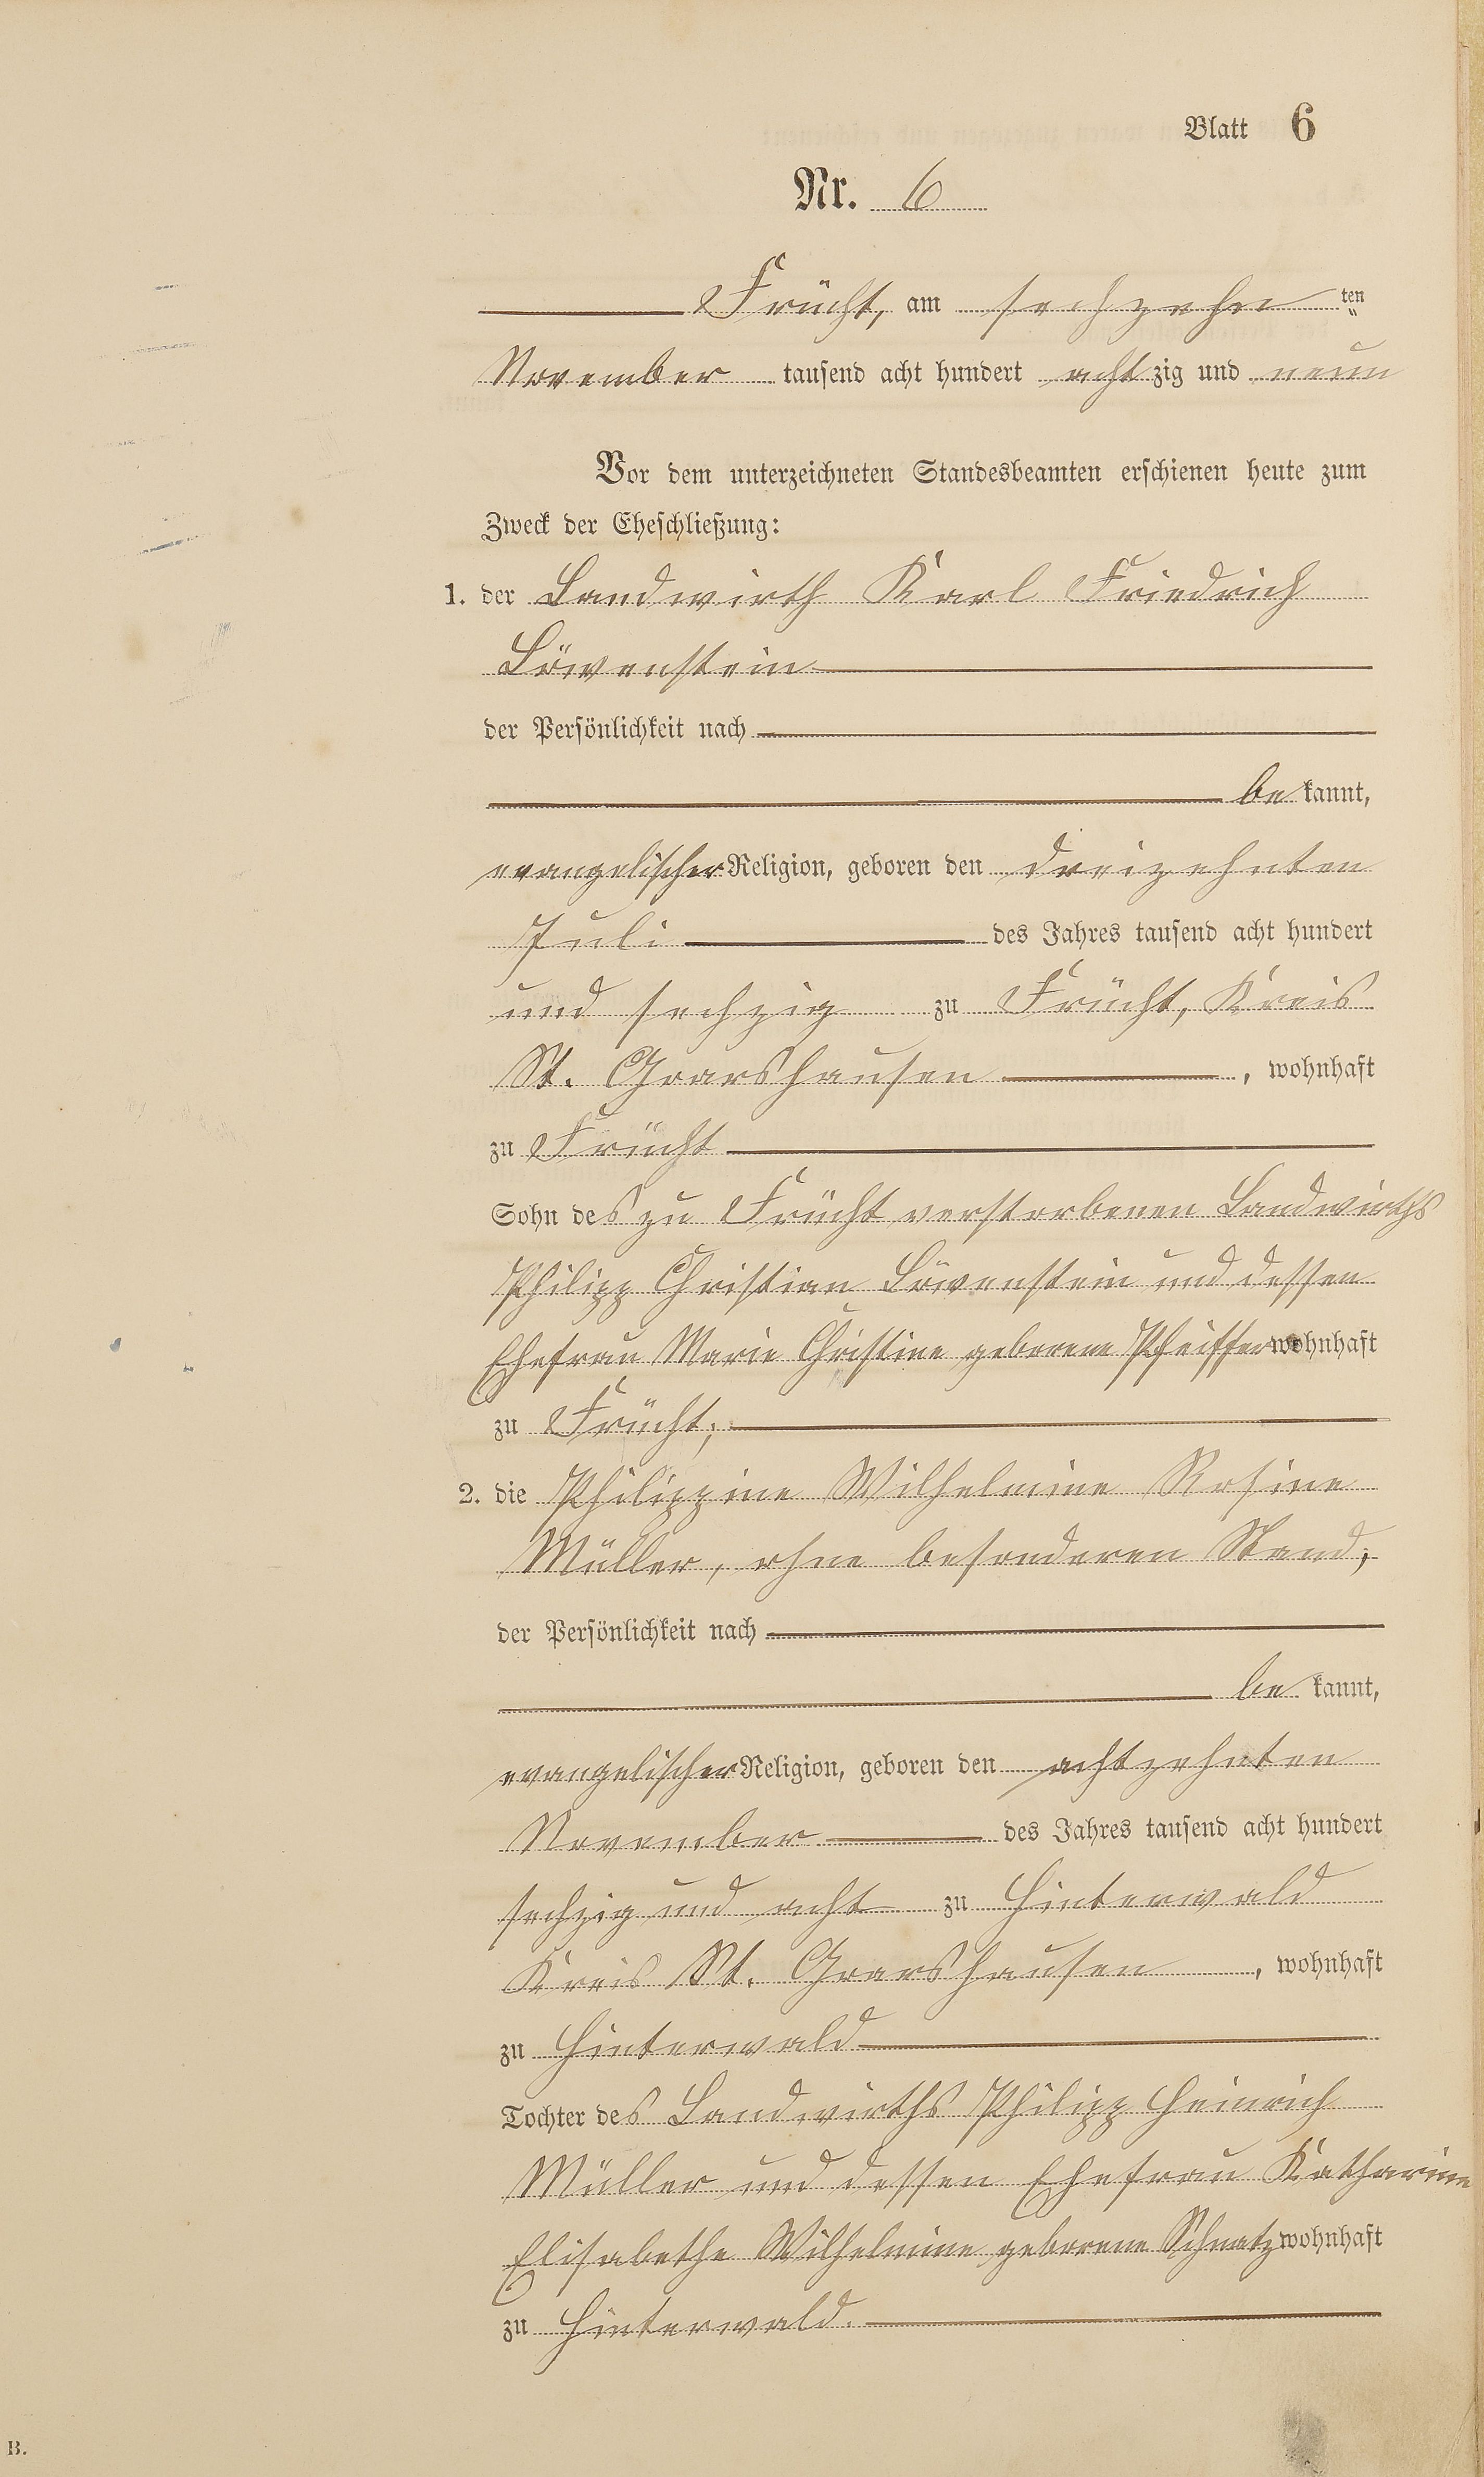 Blatt 6
Nr. 6
Frücht, am sechzehn ten
November tausend acht hundert achtzig und neun
Vor dem unterzeichneten Standesbeamten erschienen heute zum
Zweck der Eheschließung:
1. der Landwirth Karl Friedrich
Löwenstein
der Persönlichkeit nach
be kannt,
evangelischer Religion, geboren den dreizehnten
Juli des Jahres tausend acht hundert
und sechzig zu Frücht, Kreis
St. Goarshausen, wohnhaft
zu Frücht
Sohn des zu Frücht verstorbenen Landwirths
Philipp Christian Löwenstein und dessen
Ehefrau Marie Christine geborene Pfeiffer wohnhaft
zu Frücht;
2. die Philippine Wilhelmine Rosine
Müller, ohne besonderen Stand,
der Persönlichkeit nach
be kannt,
evangelischer Religion, geboren den achtzehnten
November des Jahres tausend acht hundert
sechzig und acht zu Hinterwald
Kreis St. Goarshausen, wohnhaft
zu Hinterwald
Tochter des Landwirths Philipp Heinrich
Müller und dessen Ehefrau Katharine
Elisabethe Wilhelmine geborene Schnatz wohnhaft
zu Hinterwald.
B.